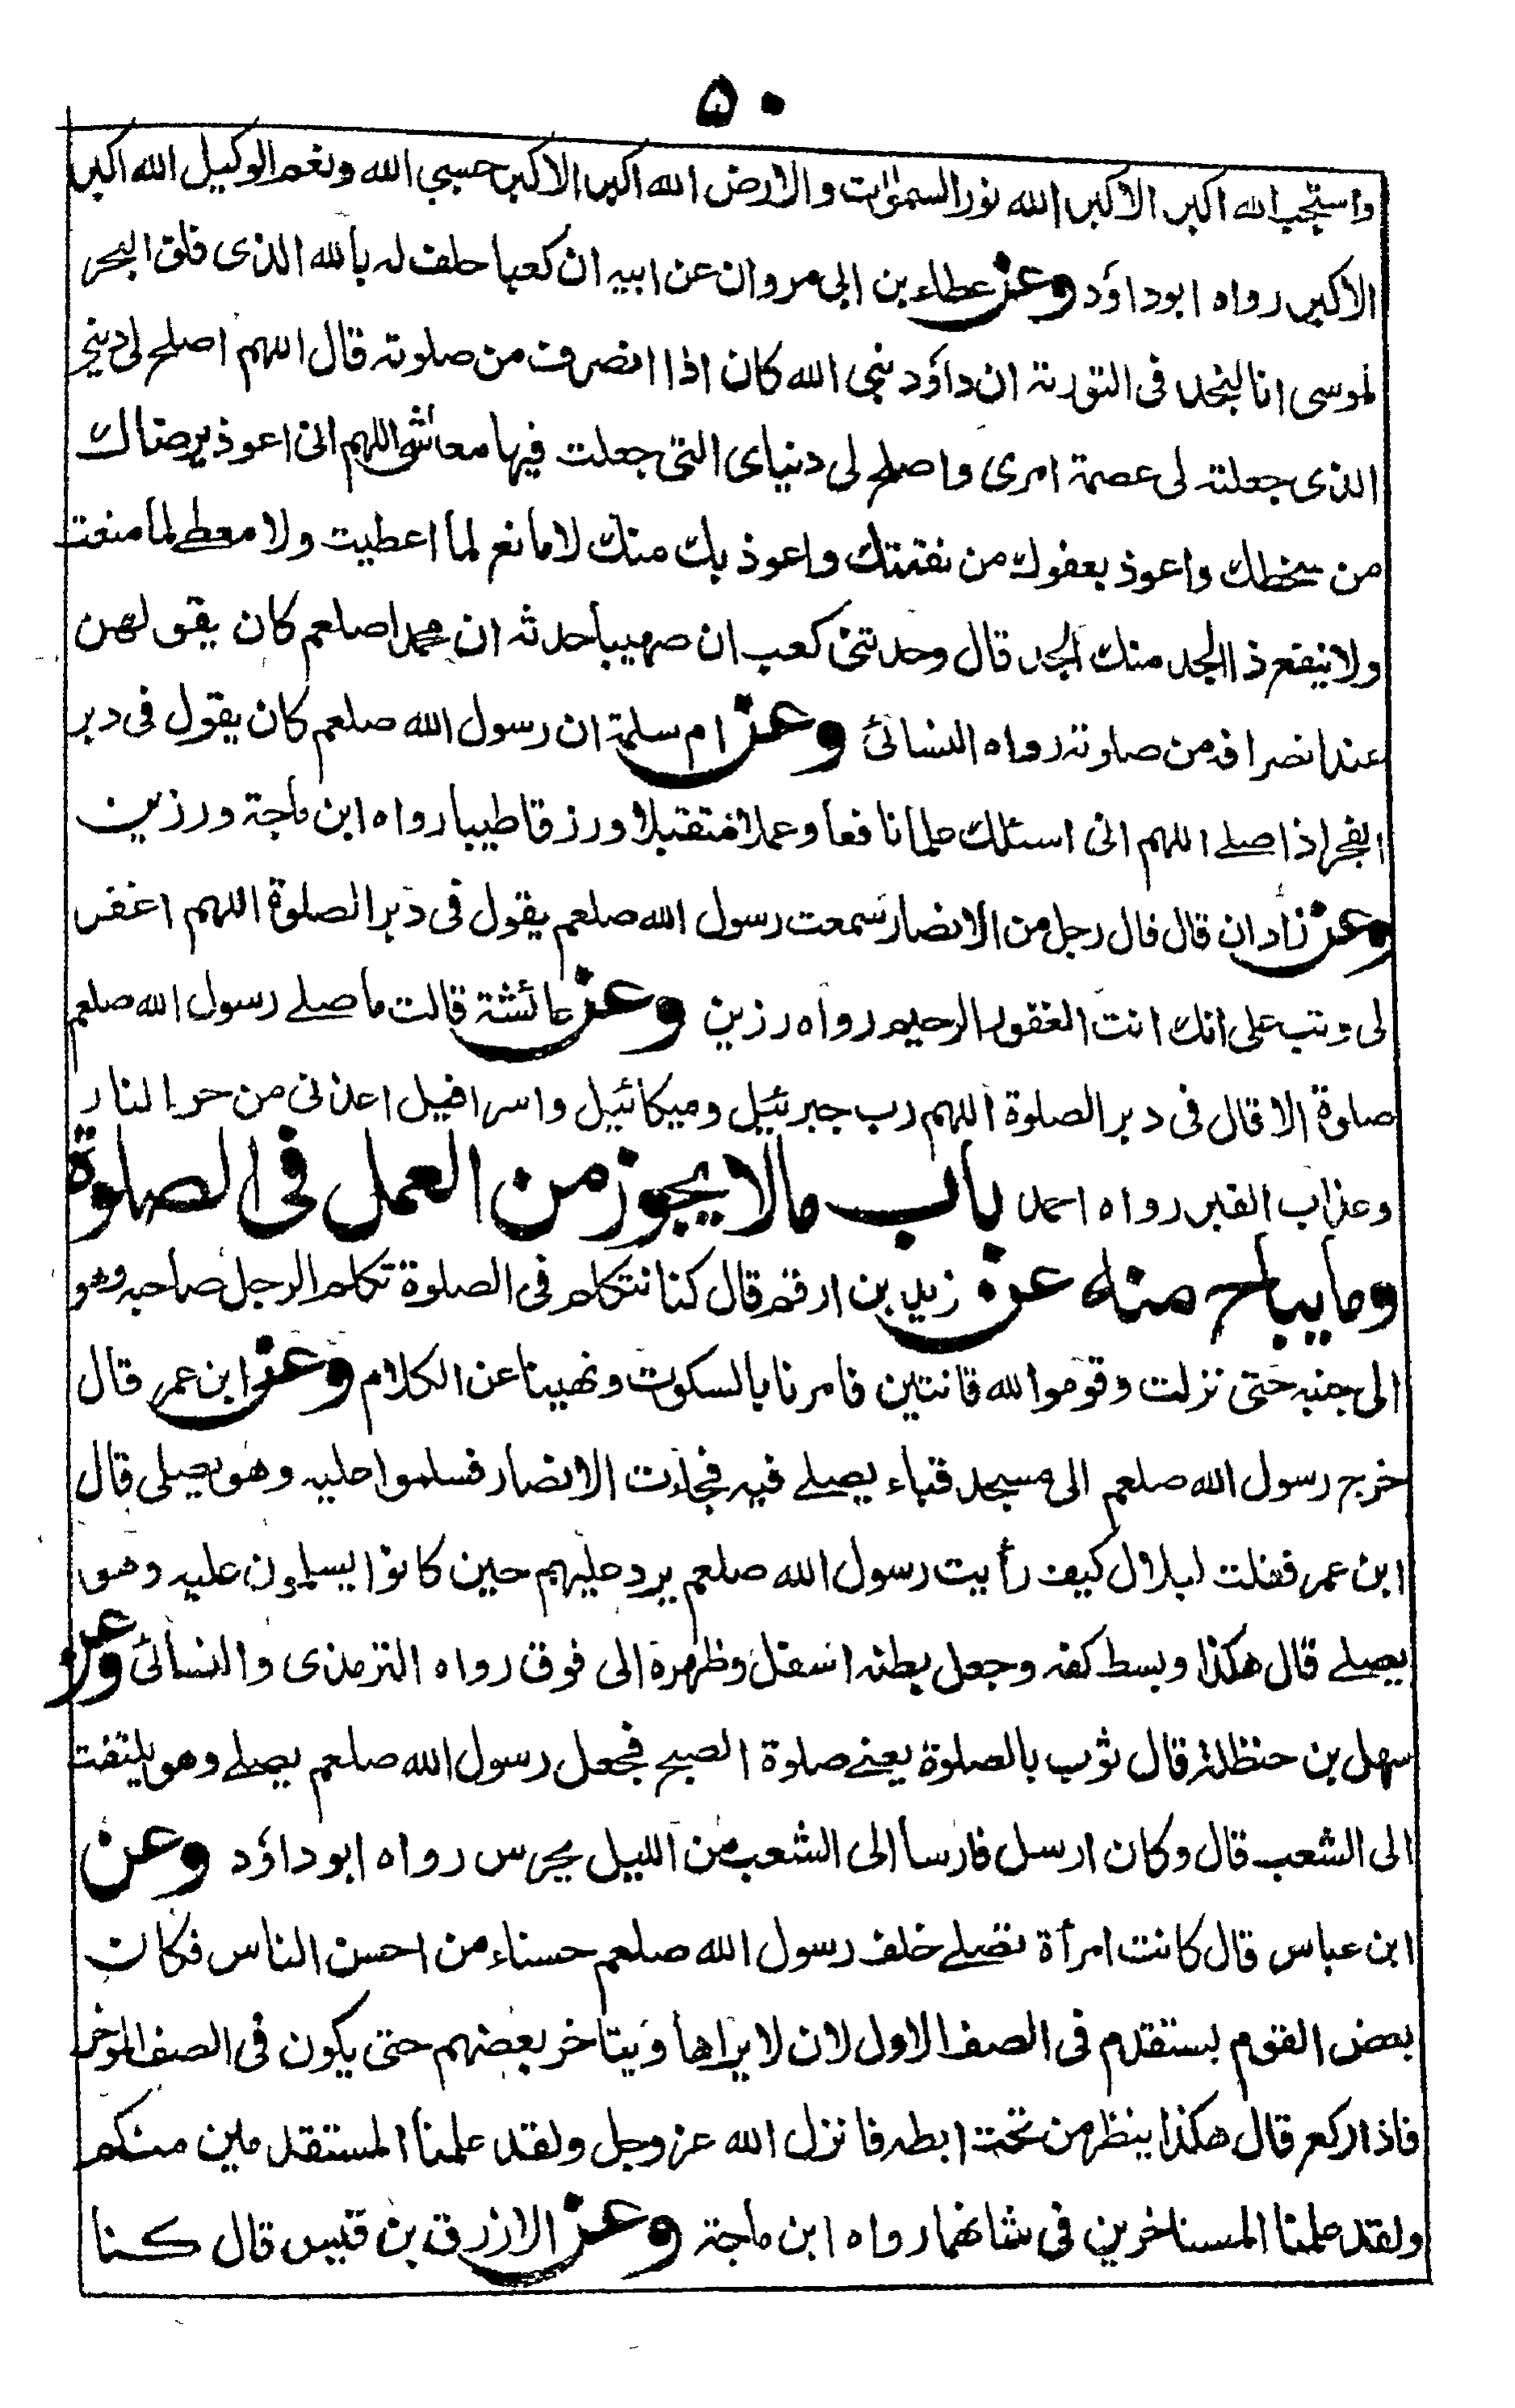 ۵۰
واستجب الله اكبر الاكبر الله نور السمٰوات والارض الله اكبر الاكبر حسبي الله ونعم الوكيل الله اكبر
الاكبر رواه ابوداؤد وعن عطاء بن ابى مروان عن ابيه ان كعبا حلف له بالله الذى فلق البحر
لموسى انا لنجد فى التورية ان داؤد نبى الله كان اذا انصرف من صلوته قال اللهم اصلح لى دينى
الذى جعلته لى عصمة امرى واصلح لى دنياى التى جعلت فيها معاشى اللهم انى اعوذ برضاك
من سخطك واعوذ بعفوك من نقمتك واعوذ بك منك لا مانع لما اعطيت ولا معطى لما منعت
ولا ينفع ذا الجد منك الجد قال وحدثنى كعب ان صهيبا حدثه ان محمدا صلعم كان يقولهن
عند انصرافه من صلوته رواه النسائى وعن ام سلمة ان رسول الله صلعم كان يقول فى دبر
الفجر اذا صلى اللهم انى اسئلك علما نافعا وعملا متقبلا ورزقا طيبا رواه ابن ماجة ورزين
وعن زادان قال قال رجل من الانصار سمعت رسول الله صلعم يقول فى دبر الصلوة اللهم اغفر
لى وتب على انك انت الغفور الرحيم رواه رزين وعن عائشة قالت ما صلى رسول الله صلعم
صلوة الا قال فى دبر الصلوة اللهم رب جبرئيل وميكائيل واسرافيل اعذنى من حر النار
وعذاب القبر رواه احمد باب مالا يجوز من العمل فى الصلوة
وما يباح منه عن زيد بن ارقم قال كنا نتكلم فى الصلوة تكلم الرجل صاحبه وهو
الى جنبه حتى نزلت وقوموا لله قانتين فامرنا بالسكوت ونهينا عن الكلام وعن ابن عمر قال
خرج رسول الله صلعم الى مسجد قباء يصلى فيه فجاءت الانصار فسلموا عليه وهو يصلى قال
ابن عمر فقلت لبلال كيف رأيت رسول الله صلعم يرد عليهم حين كانوا يسلمون عليه وهو
يصلى قال هكذا وبسط كفه وجعل بطنه اسفل وظهره الى فوق رواه الترمذى والنسائى وعن
سهل بن حنظلة قال ثوب بالصلوة يعنى صلوة الصبح فجعل رسول الله صلعم يصلى وهو يلتفت
الى الشعب قال وكان ارسل فارسا الى الشعب من الليل يحرس رواه ابوداؤد وعن
ابن عباس قال كانت امرأة تصلى خلف رسول الله صلعم حسناء من احسن الناس فكان
بعض القوم يستقدم فى الصف الاول لان لا يراها ويتاخر بعضهم حتى يكون فى الصف الموخر
فاذا ركع قال هكذا ينظر من تحت ابطه فانزل الله عز وجل ولقد علمنا المستقدمين منكم
ولقد علمنا المستاخرين فى شانهما رواه ابن ماجة وعن الازرق بن قيس قال كنا